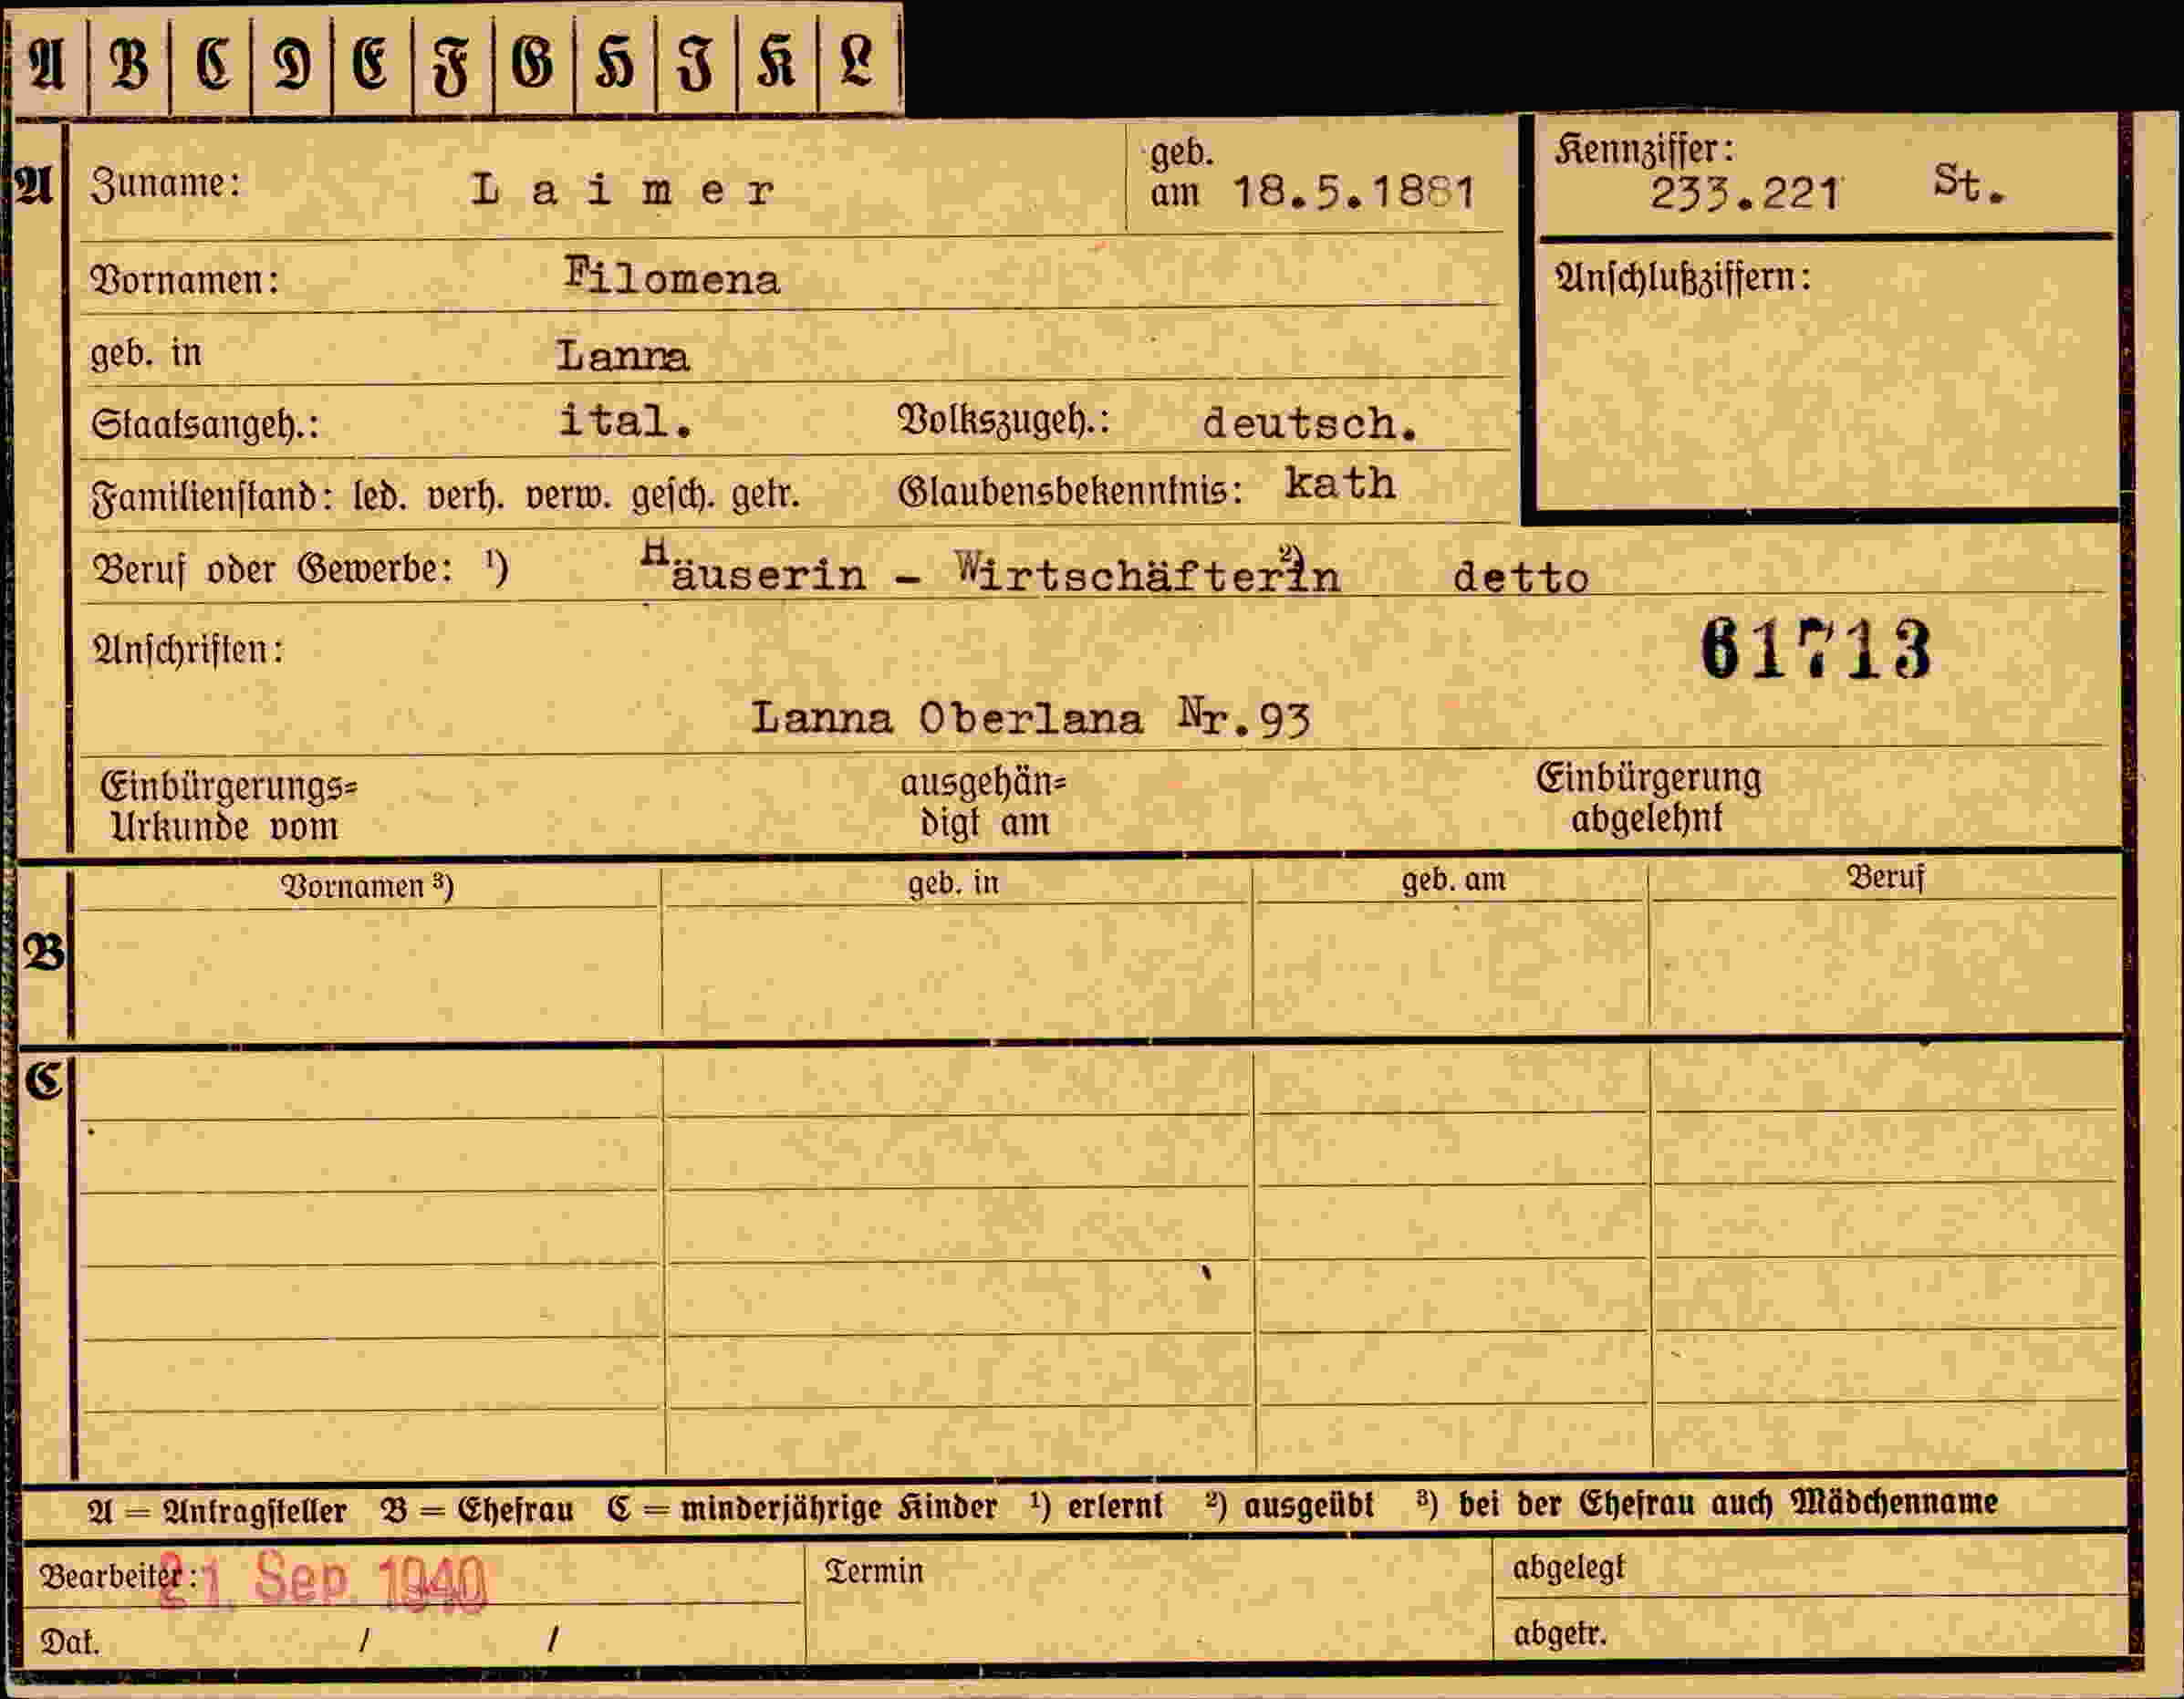 A B C D E F G H I K L
A Zuname: Laimer geb. am 18.5.1881 Kennziffer: 233.221 St.
Vornamen: Filomena Anschlußziffern:
geb. in Lanna
Staatsangeh.: ital. Volkszugeh.: deutsch.
Familienstand: led. verh. verw. gesch. getr. Glaubensbekenntnis: kath
Beruf oder Gewerbe: ¹) Häuserin - Wirtschäfterin ²) detto
Anschriften: 61713
Lanna Oberlana Nr.93
Einbürgerungs= ausgehän= Einbürgerung
Urkunde vom digt am abgelehnt
Vornamen ³) geb. in geb. am Beruf
B
C
A = Antragsteller B = Ehefrau C = minderjährige Kinder ¹) erlernt ²) ausgeübt ³) bei der Ehefrau auch Mädchenname
Bearbeiter: 21. Sep. 1940 Termin abgelegt
Dat. / / abgetr.